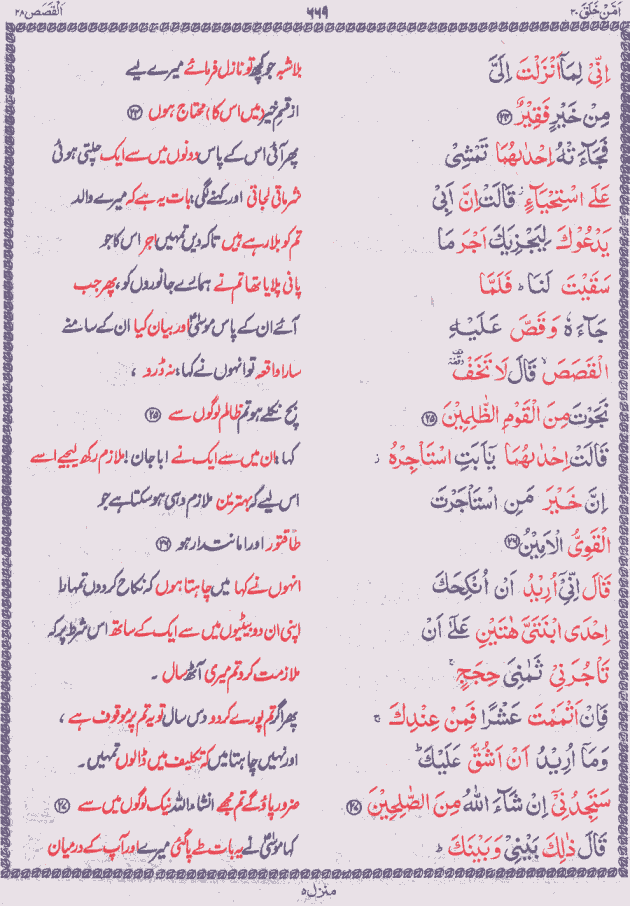 اَمَّنْ خَلَقَ ٢٠
٦٦٩
اَلْقَصَص ٢٨
اِنِّیْ لِمَاۤ اَنْزَلْتَ اِلَیَّ
بلاشبہ جو کچھ تو نازل فرمائے میرے لیے
مِنْ خَیْرٍ فَقِیْرٌ ﴿٢٤﴾
از قسم خیر (میں اس کا) محتاج ہوں ﴿٢٤﴾
فَجَآءَتْهُ اِحْدٰىهُمَا تَمْشِیْ
پھر آئی اس کے پاس دونوں میں سے ایک چلتی ہوئی
عَلَی اسْتِحْیَآءٍ ؗ قَالَتْ اِنَّ اَبِیْ
شرماتی لجاتی اور کہنے لگی: بات یہ ہے کہ میرے والد
یَدْعُوْكَ لِیَجْزِیَكَ اَجْرَ مَا
تم کو بلا رہے ہیں تاکہ دیں تمہیں اجر اس کا جو
سَقَیْتَ لَنَا ؕ فَلَمَّا
پانی پلایا تھا تم نے ہمارے جانوروں کو، پھر جب
جَآءَهٗ وَ قَصَّ عَلَیْهِ
آئے ان کے پاس موسیٰؑ اور بیان کیا ان کے سامنے
الْقَصَصَ ۙ قَالَ لَا تَخَفْ
سارا واقعہ تو انہوں نے کہا: نہ ڈرو ،
نَجَوْتَ مِنَ الْقَوْمِ الظّٰلِمِیْنَ ﴿٢٥﴾
بچ نکلے ہو تم ظالم لوگوں سے ﴿٢٥﴾
قَالَتْ اِحْدٰىهُمَا یٰۤاَبَتِ اسْتَاْجِرْهُ ؗ
کہا: ان میں سے ایک نے ابا جان! ملازم رکھ لیجیے اسے
اِنَّ خَیْرَ مَنِ اسْتَاْجَرْتَ
اس لیے کہ بہترین ملازم وہی ہو سکتا ہے جو
الْقَوِیُّ الْاَمِیْنُ ﴿٢٦﴾
طاقتور اور امانتدار ہو ﴿٢٦﴾
قَالَ اِنِّیْۤ اُرِیْدُ اَنْ اُنْكِحَكَ
انہوں نے کہا میں چاہتا ہوں کہ نکاح کر دوں تمہارا
اِحْدَی ابْنَتَیَّ هٰتَیْنِ عَلٰۤی اَنْ
اپنی ان دو بیٹیوں میں سے ایک کے ساتھ اس شرط پر کہ
تَاْجُرَنِیْ ثَمٰنِیَ حِجَجٍ ۚ
ملازمت کرو تم میری آٹھ سال ۔
فَاِنْ اَتْمَمْتَ عَشْرًا فَمِنْ عِنْدِكَ ۚ
پھر اگر تم پورے کر دو دس سال تو یہ تم پر موقوف ہے ،
وَ مَاۤ اُرِیْدُ اَنْ اَشُقَّ عَلَیْكَ ؕ
اور نہیں چاہتا میں کہ تکلیف میں ڈالوں تمہیں۔
سَتَجِدُنِیْۤ اِنْ شَآءَ اللّٰهُ مِنَ الصّٰلِحِیْنَ ﴿٢٧﴾
ضرور پاؤ گے تم مجھے انشاء اللہ نیک لوگوں میں سے ﴿٢٧﴾
قَالَ ذٰلِكَ بَیْنِیْ وَ بَیْنَكَ ؕ
کہا موسیٰؑ نے یہ بات طے پا گئی میرے اور آپ کے درمیان
منزل ٥